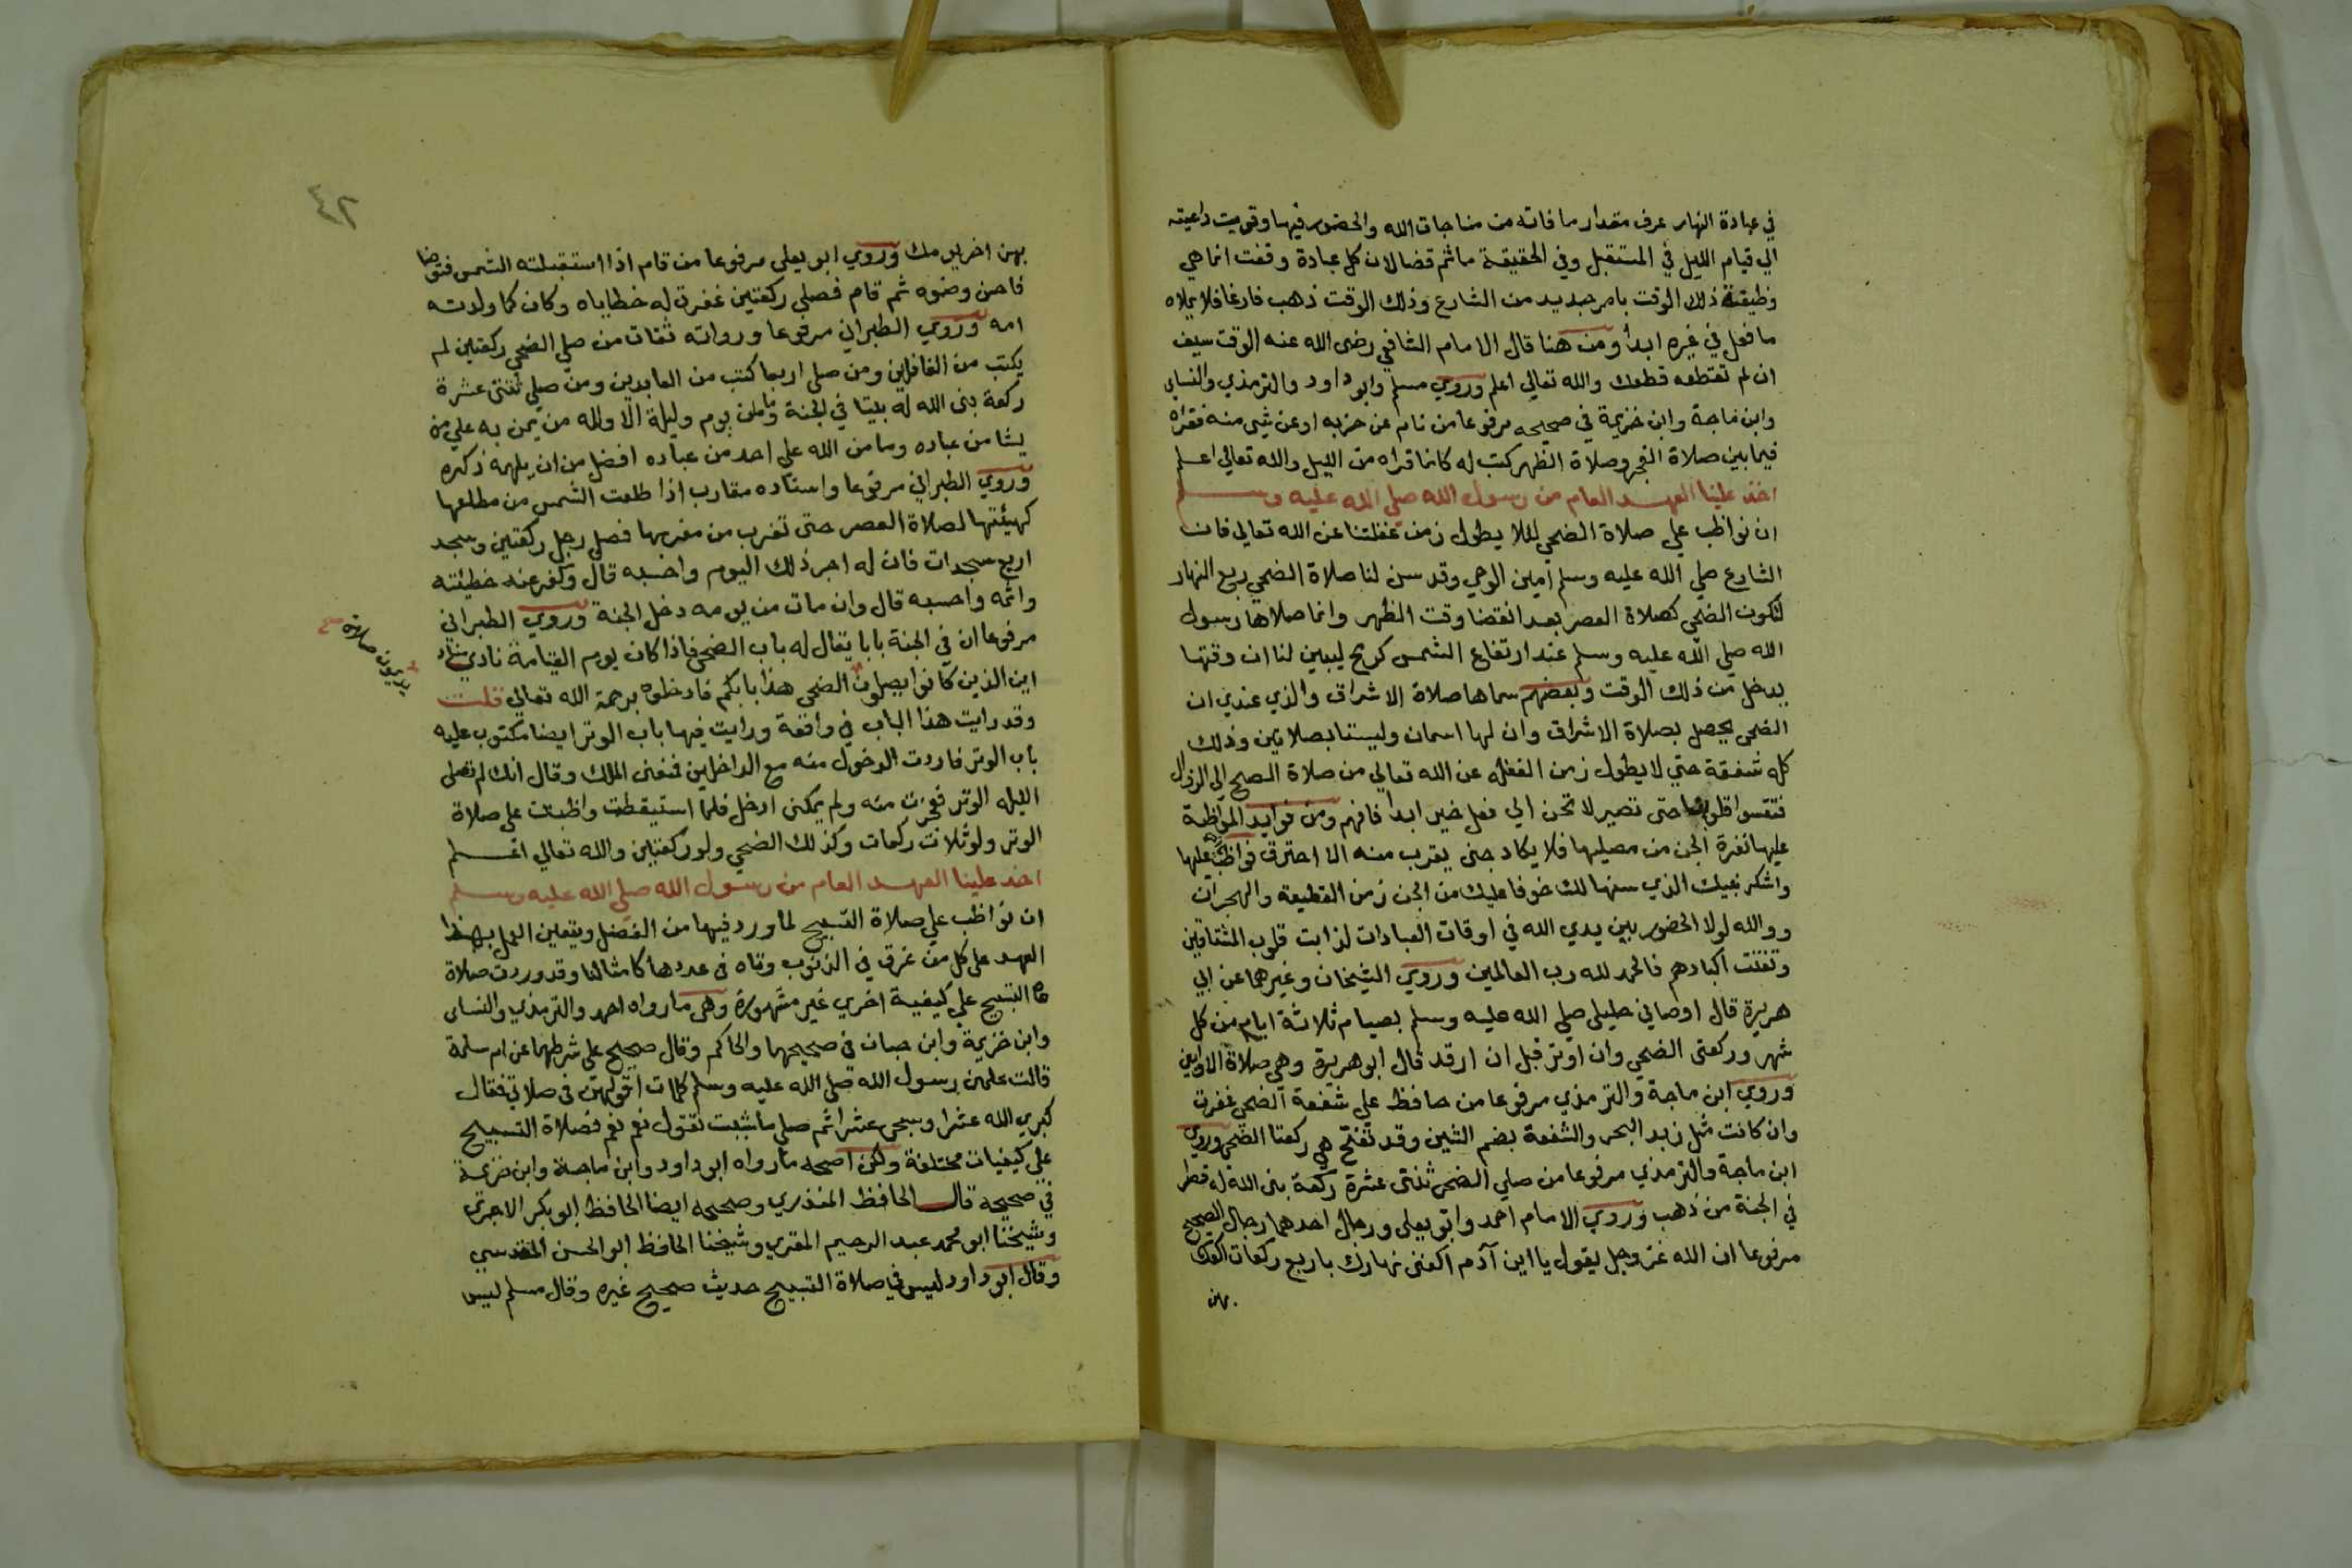 في عبادة النهار عرف مقدار ما فاته من مناجات الله والحضور فيها وقويت داعيته
الي قيام الليل في المستقبل وفي الحقيقة ما ثم قضا لان كل عبادة وقعت انما هي
وظيفة ذلك الوقت بامر جديد من الشارع وذلك الوقت ذهب فارغا فلا يملاه
ما فعل في غيره ابدا ومن هنا قال الامام الشافعي رضى الله عنه الوقت سيف
ان لم تقطعه قطعك والله تعالي اعلم وروي مسلم وابو داود والترمذي والنساي
وابن ماجة وابن خزيمة في صحيحه مرفوعا من نام عن حزبه او عن شي منه فقراه
فيما بين صلاة الفجر وصلاة الظهر كتب له كانما قراه من الليل والله تعالي اعلم
اخذ علينا العهد العام من رسول الله صلي الله عليه وسلم
ان نواظب علي صلاة الضحي لئلا يطول زمن غفلتنا عن الله تعالي فان
الشارع صلي الله عليه وسلم امين الوحي وقد سن لنا صلاة الضحي ربع النهار
لتكون الضحي كصلاة العصر بعد انقضا وقت الظهر وانما صلاها رسول
الله صلي الله عليه وسلم عند ارتفاع الشمس كرمح ليبين لنا ان وقتها
يدخل من ذلك الوقت وبعضهم سماها صلاة الاشراق والذي عندي ان
الضحي يحصل بصلاة الاشراق وان لها اسمان وليستا بصلاتين وذلك
كله شفقة حتي لا يطول زمن الغفلة عن الله تعالي من صلاة الصبح الي الزوال
فتقسوا قلوبنا حتى تصير لا تحن الي فعل خير ابدا فافهم ومن فوايد المواظبة
عليها نفرة الجن من مصليها فلا يكاد جني يقرب منه الا احترق فواظب عليها
واشكر نبيك الذي سنها لك خوفا عليك من الجن زمن القطيعة والهجران
ووالله لولا الحضور بين يدي الله في اوقات العبادات لذابت قلوب المشتاقين
وتفتت اكبادهم فالحمد لله رب العالمين وروي الشيخان وغيرهما عن ابي
هريرة قال اوصاني خليلي صلي الله عليه وسلم بصيام ثلاثة ايام من كل
شهر وركعتى الضحي وان اوتر قبل ان ارقد قال ابو هريرة وهي صلاة الاوابين
وروي ابن ماجة والترمذي مرفوعا من حافظ علي شفعة الضحي غفرت
وان كانت مثل زبد البحر والشفعة بضم الشين وقد تفتح هي ركعتا الضحي وروي
ابن ماجة والترمذي مرفوعا من صلي الضحي ثنتى عشرة ركعة بنى الله له قصرا
في الجنة من ذهب وروي الامام احمد وابو يعلى ورجال احدهما رجال الصحيح
مرفوعا ان الله عز وجل يقول يا ابن آدم اكفنى نهارك باربع ركعات اكفك
بهن
٤٢
بهن اخر يومك وروي ابو يعلى مرفوعا من قام اذا استقبلته الشمس فتوضا
فاحسن وضوه ثم قام فصلي ركعتين غفرت له خطاياه وكان كما ولدته
امه وروي الطبراني مرفوعا ورواته ثقات من صلي الضحي ركعتين لم
يكتب من الغافلين ومن صلى اربعا كتب من العابدين ومن صلي ثنتى عشرة
ركعة بنى الله له بيتا في الجنة وما من يوم وليلة الا ولله من يمن به علي من
يشا من عباده وما من الله علي احد من عباده افضل من ان يلهمه ذكره
وروي الطبراني مرفوعا واسناده مقارب اذا طلعت الشمس من مطلعها
كهيئتها لصلاة العصر حتى تغرب من مغربها فصلي رجل ركعتين وسجد
اربع سجدات فان له اجر ذلك اليوم واحسبه قال وكفر عنه خطيئته
واثمه واحسبه قال وان مات من يومه دخل الجنة وروي الطبراني
مرفوعا ان في الجنة بابا يقال له باب الضحي فاذا كان يوم القيامة نادي مناد
اين الذين كانوا يصلون الضحي هذا بابكم فادخلوه برحمة الله تعالي قلت
يديمون صلاة
وقد رايت هذا الباب في واقعة ورايت فيها باب الوتر ايضا مكتوب عليه
باب الوتر فاردت الدخول منه مع الداخلين فمنعنى الملك وقال انك لم تصلى
الليلة الوتر ولم يمكنى ادخل فلما استيقظت واظبت على صلاة
الوتر ولو ثلاث ركعات وكذلك الضحي ولو ركعتين والله تعالي اعلم
اخذ علينا العهد العام من رسول الله صلي الله عليه وسلم
ان نواظب علي صلاة التسبيح لما ورد فيها من الفضل ويتعين العمل بهذا
العهد على كل من غرق في الذنوب وتاه في عددها كامثالنا وقد وردت صلاة
التسبيح علي كيفية اخري غير مشهورة وهي ما رواه احمد والترمذي والنساى
وابن خزيمة وابن حبان في صحيحهما والحاكم وقال صحيح على شرطهما عن ام سلمة
قالت علمنى رسول الله صلي الله عليه وسلم كلمات اقولهن في صلاتي فقال
كبري الله عشرا وسبحى عشرا ثم صلي ما شيت تقول نعم نعم فصلاة التسبيح
علي كيفيات مختلفة ولكن اصحه ما رواه ابو داود وابن ماجة وابن خزيمة
في صحيحه قال الحافظ المنذري وصححه ايضا الحافظ ابو بكر الاجري
وشيخنا ابو محمد عبد الرحيم المقري وشيخنا الحافظ ابو الحسن المقدسي
وقال ابو داود ليس في صلاة التسبيح حديث صحيح غيره وقال مسلم ليس